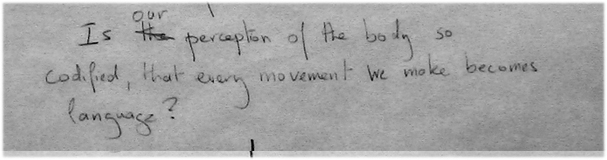 Is our perception of the body so
codified, that every movement we make becomes
language?